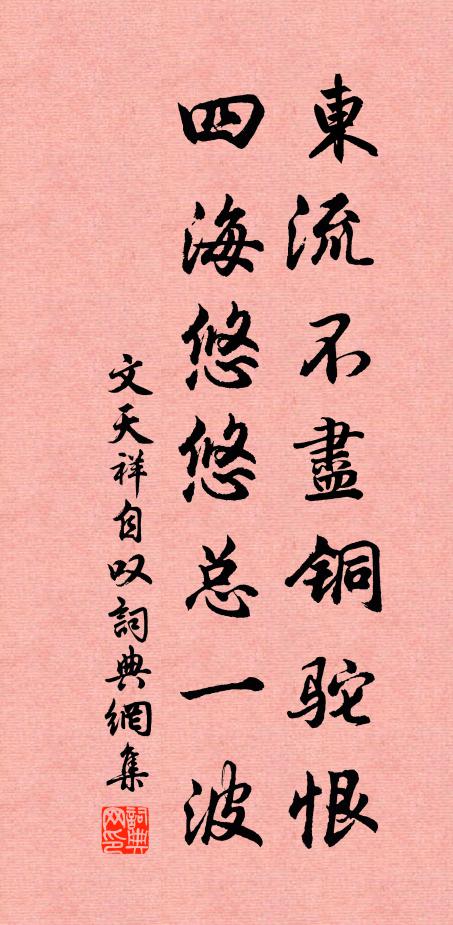 東流不盡铜驼恨
四海悠悠总一波
文天祥自叹詞典網集
詞典网印